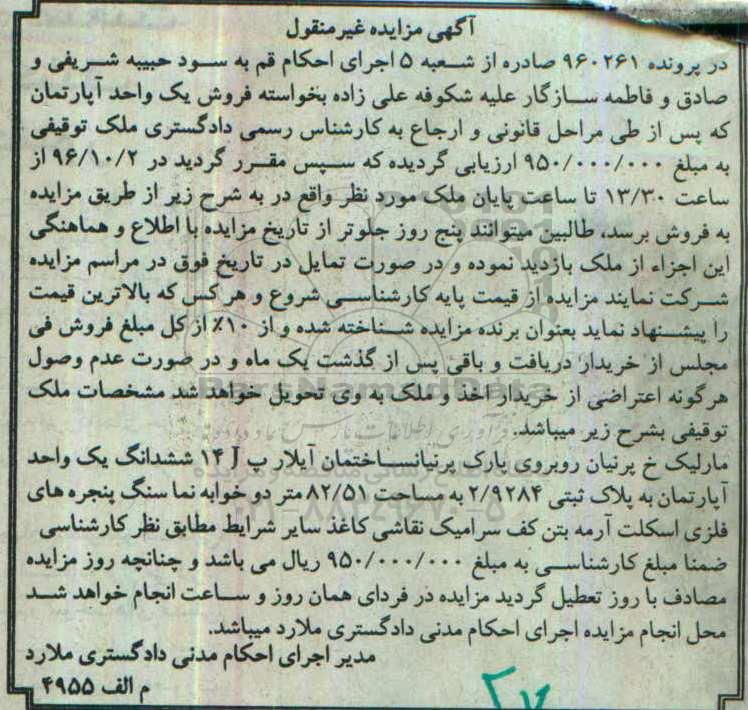 آگهی مزایده غیرمنقول
در پرونده ۹۶۰۲۶۱ صادره از شعبه ۵ اجرای احکام قم به سود حبیبه شریفی و
صادق و فاطمه سازگار علیه شکوفه علی زاده بخواسته فروش یک واحد آپارتمان
که پس از طی مراحل قانونی و ارجاع به کارشناس رسمی دادگستری ملک توقیفی
به مبلغ ۹۵۰/۰۰۰/۰۰۰ ارزیابی گردیده که سپس مقرر گردید در ۹۶/۱۰/۲ از
ساعت ۱۳/۳۰ تا ساعت پایان ملک مورد نظر واقع در به شرح زیر از طریق مزایده
به فروش برسد، طالبین میتوانند پنج روز جلوتر از تاریخ مزایده با اطلاع و هماهنگی
این اجراء از ملک بازدید نموده و در صورت تمایل در تاریخ فوق در مراسم مزایده
شرکت نمایند مزایده از قیمت پایه کارشناسی شروع و هر کس که بالاترین قیمت
را پیشنهاد نماید بعنوان برنده مزایده شناخته شده و از ۱۰٪ از کل مبلغ فروش فی
مجلس از خریدار دریافت و باقی پس از گذشت یک ماه و در صورت عدم وصول
هرگونه اعتراضی از خریدار اخذ و ملک به وی تحویل خواهد شد مشخصات ملک
توقیفی بشرح زیر میباشد.
مارلیک خ پرنیان روبروی پارک پرنیان ساختمان آیلار پ ۱۴ J ششدانگ یک واحد
آپارتمان به پلاک ثبتی ۲/۹۲۸۴ به مساحت ۸۲/۵۱ متر دو خوابه نما سنگ پنجره های
فلزی اسکلت آرمه بتن کف سرامیک نقاشی کاغذ سایر شرایط مطابق نظر کارشناسی
ضمنا مبلغ کارشناسی به مبلغ ۹۵۰/۰۰۰/۰۰۰ ریال می باشد و چنانچه روز مزایده
مصادف با روز تعطیل گردید مزایده در فردای همان روز و ساعت انجام خواهد شد
محل انجام مزایده اجرای احکام مدنی دادگستری ملارد میباشد.
مدیر اجرای احکام مدنی دادگستری ملارد
م الف ۴۹۵۵
۲۷
ParsNamadData
۰۲۱-۸۸۳۴۹۶۷۰-۵